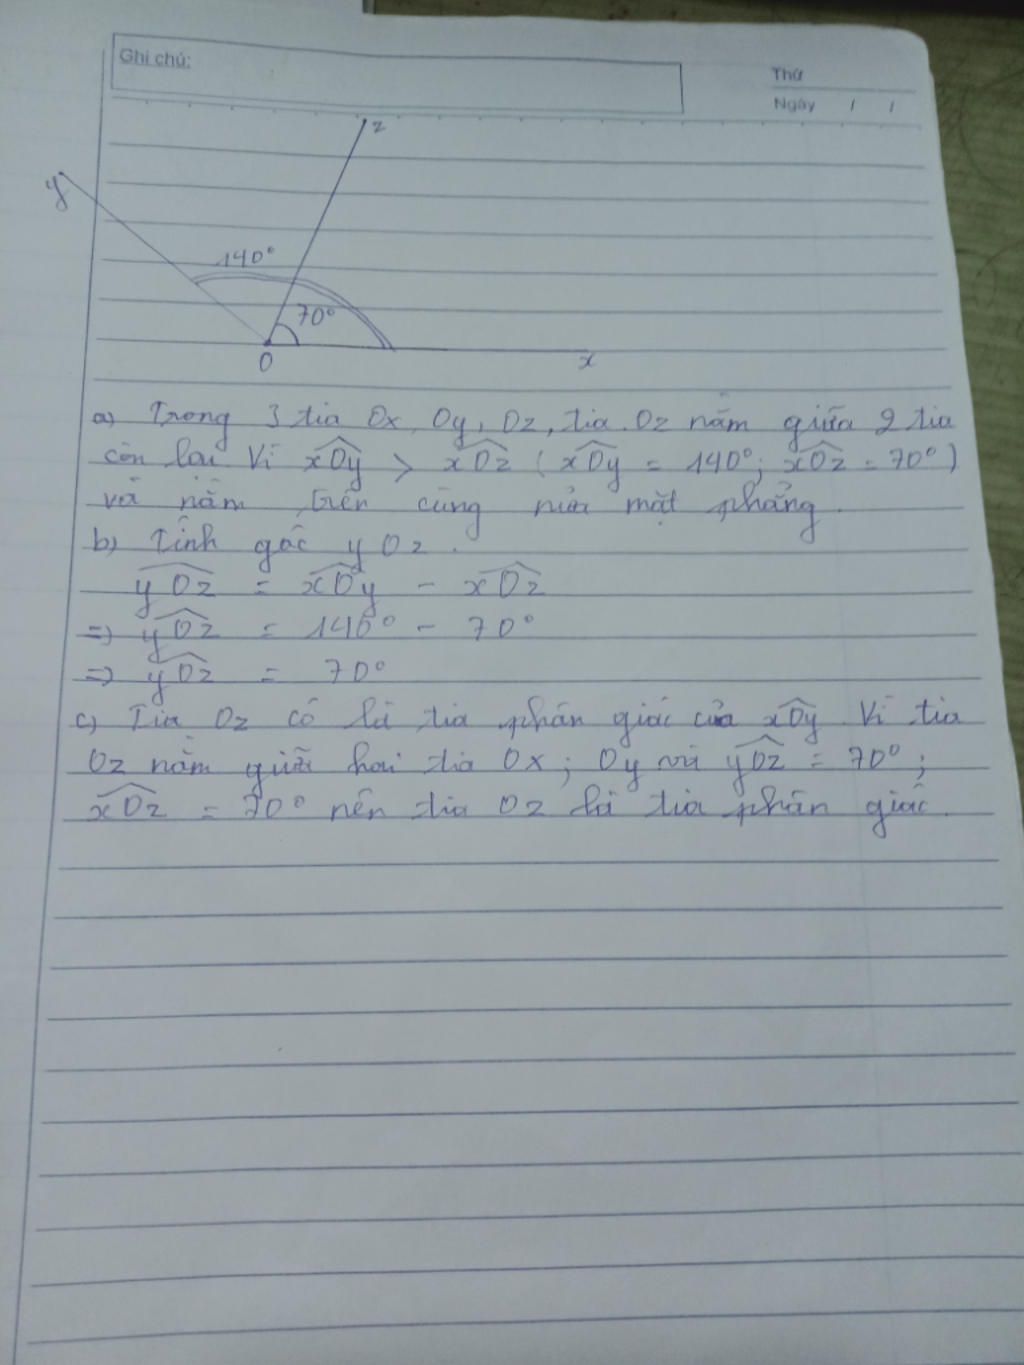 Ghi chú:
Thứ
Ngày / /
z
y
140°
70°
O
x
a) Trong 3 tia Ox, Oy, Oz, tia Oz nằm giữa 2 tia
còn lại. Vì xOy > xOz (xOy = 140°; xOz = 70°)
và nằm trên cùng nửa mặt phẳng.
b) Tính góc yOz.
yOz = xOy - xOz
=> yOz = 140° - 70°
=> yOz = 70°
c) Tia Oz có là tia phân giác của xOy. Vì tia
Oz nằm giữa hai tia Ox; Oy mà yOz = 70°;
xOz = 70° nên tia Oz là tia phân giác.